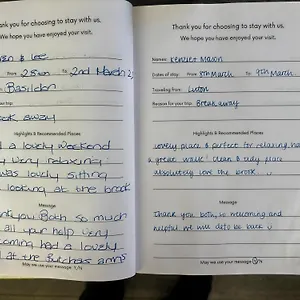 Thank you for choosing to stay with us.
We hope you have enjoyed your visit.
& Lee
From: to: 2nd March
Basildon
break away
Highlights & Recommended Places
a lovely weekend
very relaxing
was lovely sitting
looking at the brook
Message
you Both so much
all your help very
had a lovely
at the Butchers arms
May we use your message Y/N
Thank you for choosing to stay with us.
We hope you have enjoyed your visit.
Names: Mason
Dates of stay: From: 8th March to: 9th March
Traveling from: Luton
Reason for your trip: Break away
Highlights & Recommended Places
Lovely place & perfect for relaxing, had
a great walk! Clean & tidy place
absolutely love the brook
Message
Thank you both, so welcoming and
helpful we will defo be back
May we use your message Y/N